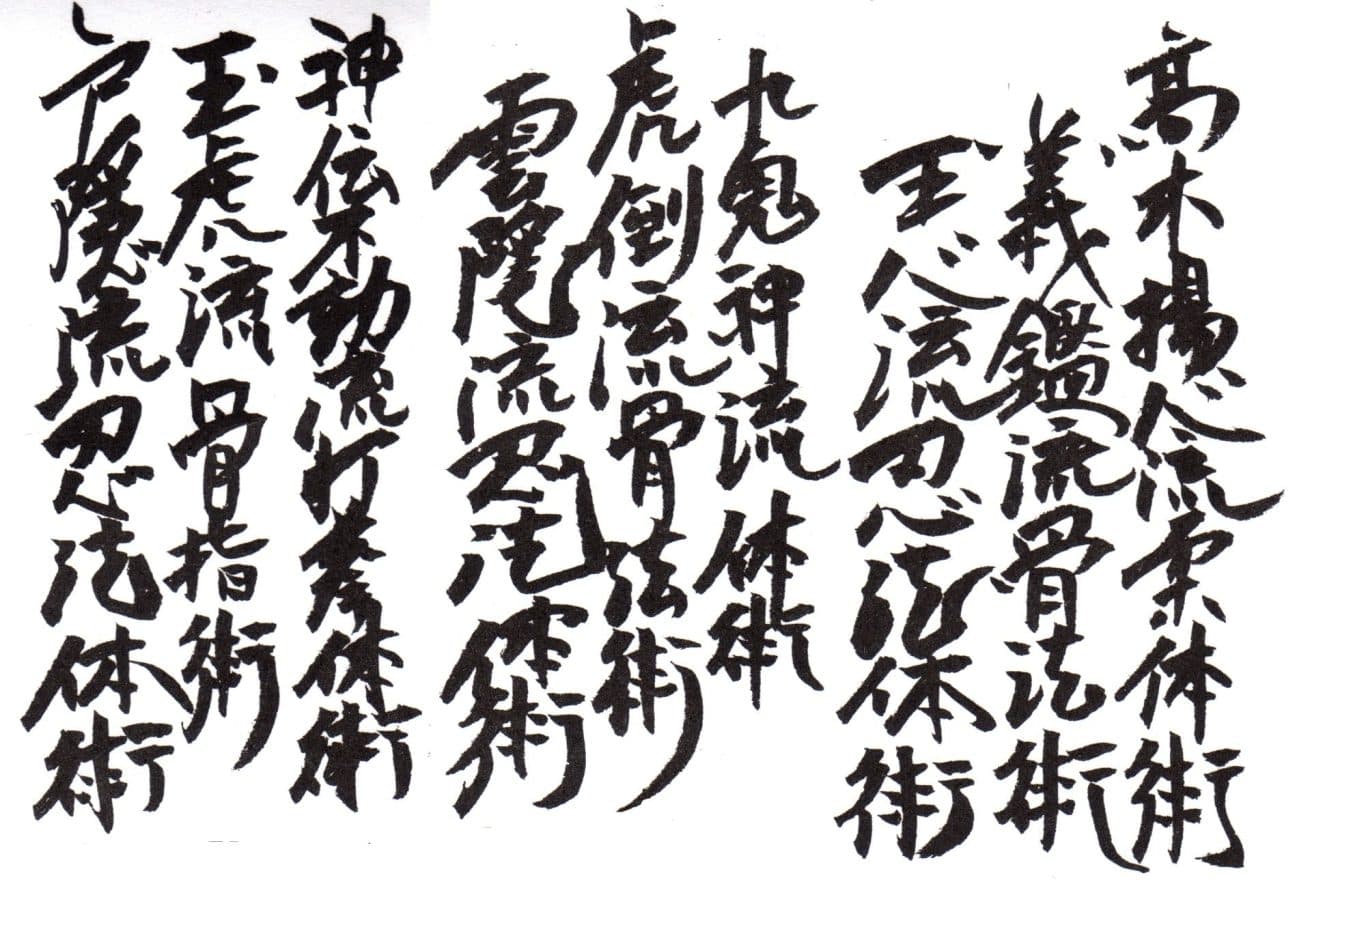 高木揚心流柔体術
義鑑流骨法術
玉心流忍法体術
九鬼神流体術
虎倒流骨法術
雲隠流忍法体術
神伝不動流打拳体術
玉虎流骨指術
戸隠流忍法体術